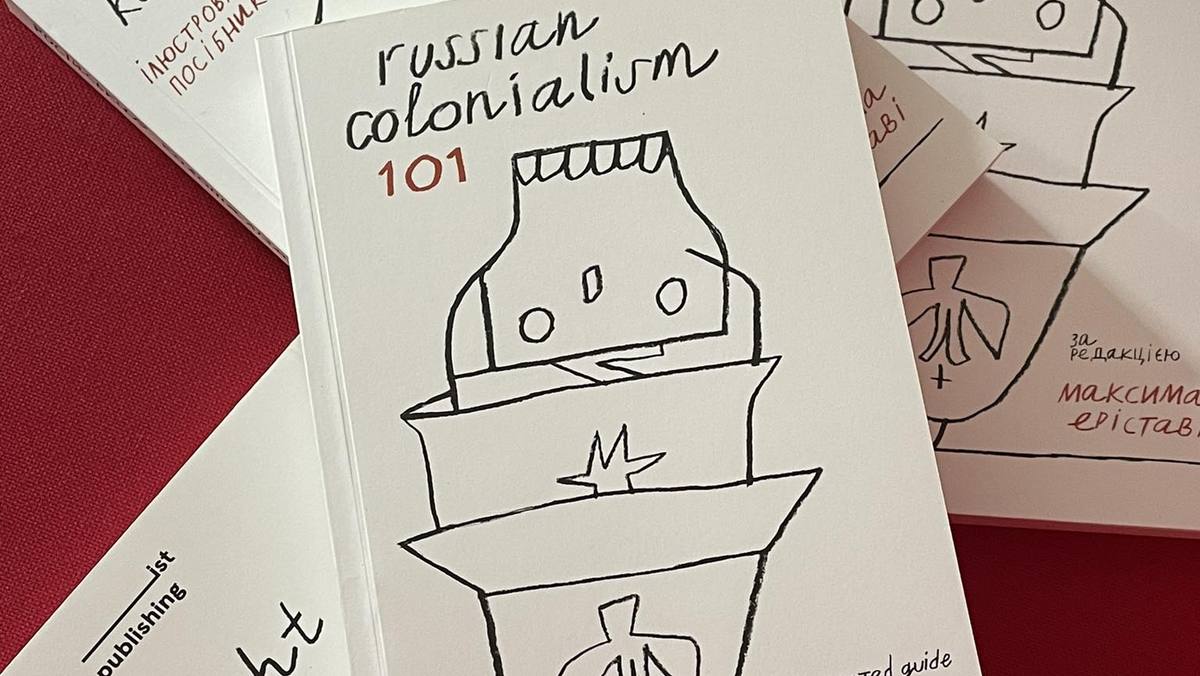 russian
colonialism
101
ілюстрова
посібник
аві
за
редакцією
максима
еріставі
ist
publishing
ht
guide